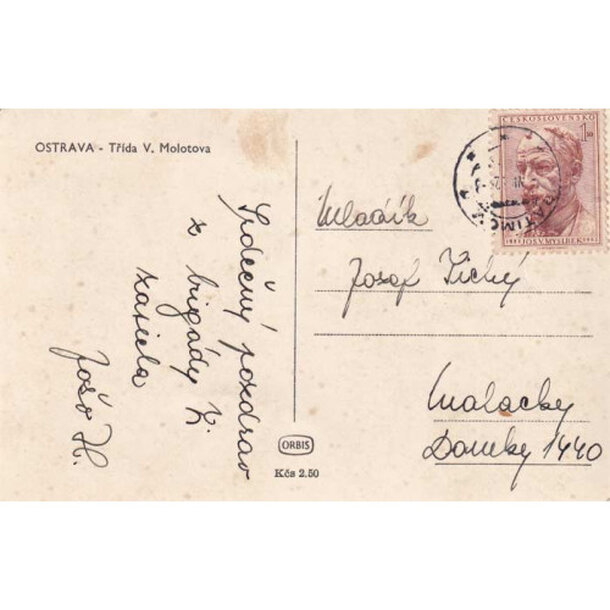 OSTRAVA - Třída V. Molotova
Srdečný pozdrav
z brigády Vám
zasiela
Jožo H.
ORBIS
Kčs 2.50
ČESKOSLOVENSKO
1.50
JOS. V. MYSLBEK
RATIMOV
Mladík
Jozef Tichý
Malacky
Domky 1440